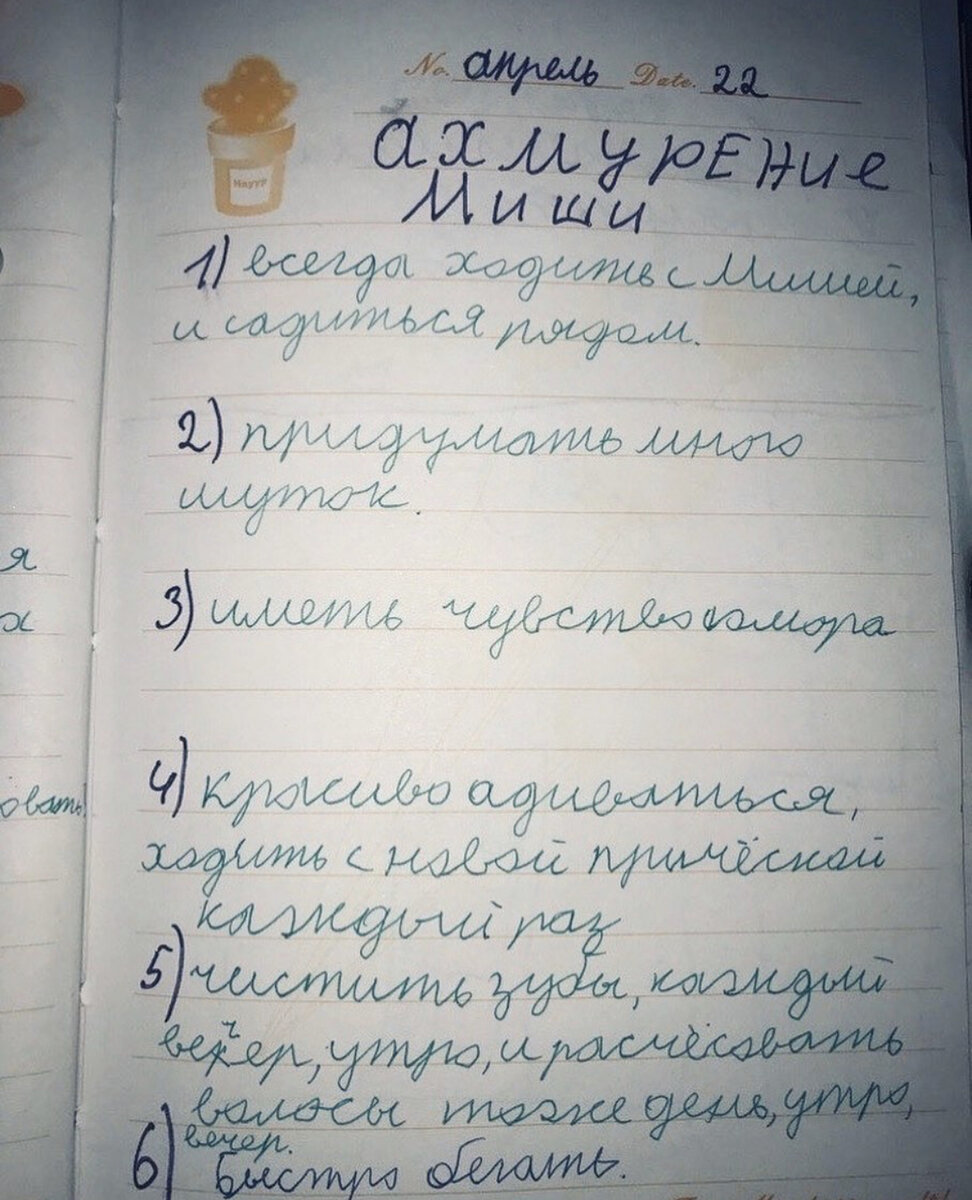 No. апрель Date. 22
Наууp
ахмуренИе
Миши
1) всегда ходить с Мишей,
и садиться рядом.
2) придумать много
шуток.
3) иметь чувство юмора
4) красиво адиваться,
ходить с новой причёской
каждый раз
5) чистить зубы, каждый
вечер, утро, и расчёсовать
волосы тоже день, утро,
вечер.
6) Быстро бегать.
я
х
овать